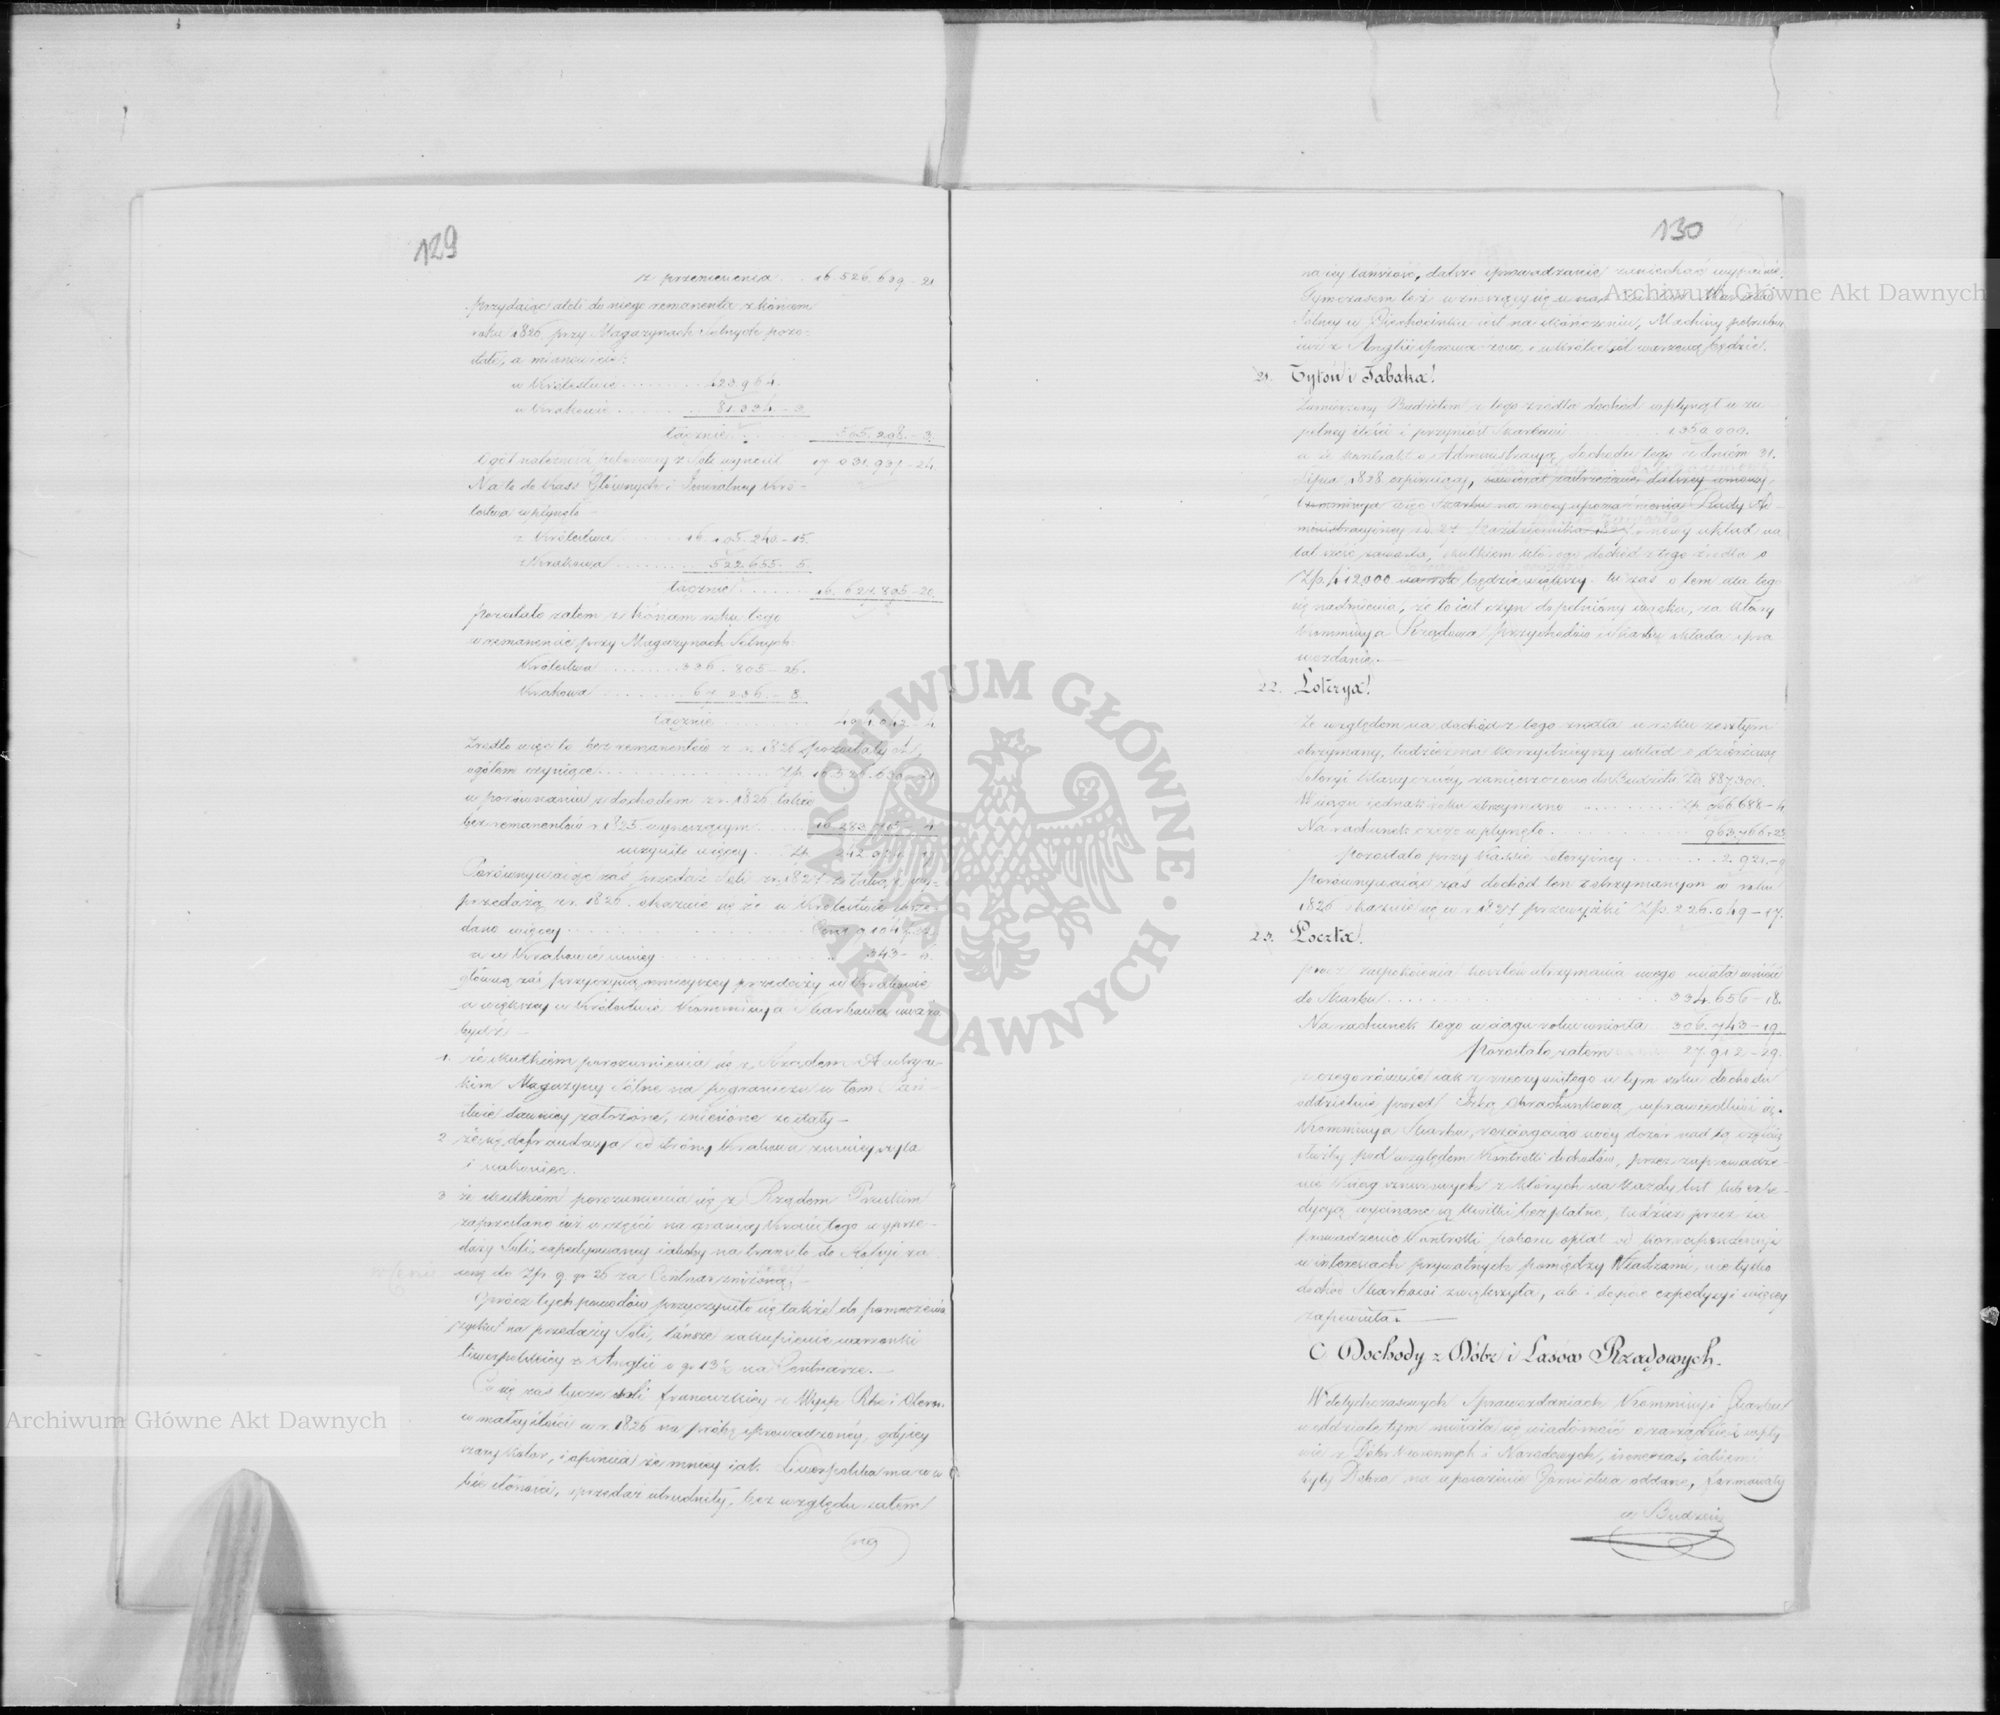 129
z przeniesienia . . 16.526.639 - 21
Przydaiąc ateli do niego remanenta z końcem
roku 1826 przy Magazynach Solnych pozo-
stałe, a mianowicie:
w Królestwie . . . . . . . . 423.964.
w Krakowie . . . . . . . 81.334 - 3
łącznie . . . . . . 505.298 - 3.
Ogół należności poborowey z Soli wynosił 17.031.937 - 24
Na to do Kass Głównych i Jeneralney Kró-
lestwa wpłynęło -
z Królestwa . . . . . . . 16.105.240 - 15.
z Krakowa . . . . . . . 522.655 - 5.
łącznie . . . . . . . 16.627.895 - 20.
Pozostało zatem z końcem roku tego
w remanencie przy Magazynach Solnych.
Królestwa . . . . . . . . 336.805 - 26.
Krakowa . . . . . . . . 67.236 - 8.
łącznie . . . . . . . . 404.042 - 4
Źródło więc to bez remanentów z r. 1826 pozostałych
ogółem czyniące . . . . . . . . . . . Zp. 16.526.639 - 21
w porównaniu z dochodem z r. 1826 także
bez remanentów r. 1825 wynoszącym . . . 16.283.705 -
uczyniło więcey . . . Zp. 242.934
Porównywaiąc zaś przedaż Soli z r. 1827 z takąż wy-
przedażą z r. 1826. okazuie się że w Królestwie sprze-
dano więcey . . . . . . . . . . . . . Cent. 9104
a w Krakowie mniey . . . . . . . . . . . „ 343 -
główną zaś przyczyną mnieyszey przedaży w Krakowie
a większey w Królestwie Kommissya Skarbowa uważa
bydź -
1. że skutkiem porozumienia się z Rządem Austrya-
kim Magazyny Solne na pograniczu w tem Pań-
stwie dawniey założone, zniesione zostały -
2. że się defraudacya od strony Krakowa zmnieyszyła
i nakoniec.
3. że skutkiem porozumienia się z Rządem Pruskim
zaprzestano iuż w części na granicy Kraiu tego wyprze-
daży Soli, expedyowaney iakoby na tranzito do Rossyi za
cenę do Zp. 9 gr 26 za Centnar zniżoną. -
Oprócz tych powodów przyczyniło się także do pomnożenia
zysku na przedaży Soli, tańsze zakupienie warzonki
liwerpolskiey z Anglii o gr 13½ na Centnarze. -
Co się zaś tycze soli francuzkiey z Wysp Rhe i Oleron
w małey ilości w r. 1826 na próbę sprowadzoney, gdy iey
szary kolor, i opiniia że mniey iak Liwerpolska ma w so-
bie słoności, sprzedaż utrudniły, bez względu zatem
na
130
na iey tańszość, dalsze sprowadzanie zaniechać wypadnie.
Tymczasem też wznoszący się u nas Zakład Warzelni
Solney w Ciechocinku iest na skończeniu, Machiny potrzebne
iuż z Anglii sprowadzono, i w Królestwie sól warzoną będzie.
21. Tytoń i Tabaka.
Zamierzony Budżetem z tego źródła dochód wpłynął w zu-
pełney ilości i przyniósł Skarbowi . . . . . . . 1.350.000.
a że kontrakt o Administracyą dochodu tego z dniem 31.
Lipca 1828 expiruiący,
Kommissya więc Skarbu na mocy upoważnienia Rady Ad-
ministracyiney z d. 27 Października 1827 nowy układ na
lat sześć zawarła, skutkiem którego dochód z tego źródła o
Zp. 412.000 będzie większy. tu zaś o tem dla tego
się nadmienia, że to iest czyn dopełniony w roku, za który
Kommissya Rządowa Przychodów i Skarbu składa spra-
wozdanie. -
22. Loterya.
Ze względem na dochód z tego źródła w roku zeszłym
otrzymany, tudzież na korzystnieyszy układ o dzierżawę
Loteryi klassyczney, zamieszczono do Budżetu Zp. 887.300.
W ciągu iednak roku otrzymano . . . . . . . Zp. 966.688 - 4
Na rachunek czego wpłynęło . . . . . . . . 963.766 - 25
Pozostało przy Kassie Loteryiney . . . . . . . . 2.921 - 9
Porównywaiąc zaś dochód ten z otrzymanym w roku
1826 okazuie się w r. 1827 przewyżki Zp. 226.049 - 17.
23. Poczta.
Prócz zaspokoienia kosztów utrzymania swego miała wnieść
do Skarbu . . . . . . . . . . . . . . . . 334.656 - 18.
Na rachunek tego w ciągu roku wniosła . . 306.743 - 19
Pozostało zatem 27.912 - 29.
z czego równie iak z rzeczywistego w tym roku dochodu
oddzielnie przed Izbą Obrachunkową usprawiedliwi się.
Kommissya Skarbu, rozciągaiąc swóy dozór nad tą częścią
służby pod względem Kontrolli dochodów, przez zaprowadze-
nie Xiąg sznurowych z których na każdy list lub expe-
dycyą wycinane są kwitki bezpłatne, tudzież przez za-
prowadzenie Kontrolli poboru opłat od korrespondencyi
w interesach prywatnych pomiędzy Władzami, nie tylko
dochód Skarbowi zwiększyła, ale i dopiero expedycyi więcey
zapewniła. -
C. Dochody z Dóbr i Lasów Rządowych.
W dotychczasowych Sprawozdaniach Kommissyi Skarbu
w oddziale tym mieściła się wiadomość o zarządzie i wpły-
wie z Dóbr koronnych i Narodowych, ieneczas, iakiemi
były Dobra na uposażenie Górnictwa oddane, formowały
w Budżecie
Archiwum Główne Akt Dawnych
Archiwum Główne Akt Dawnych
ARCHIWUM GŁÓWNE AKT DAWNYCH